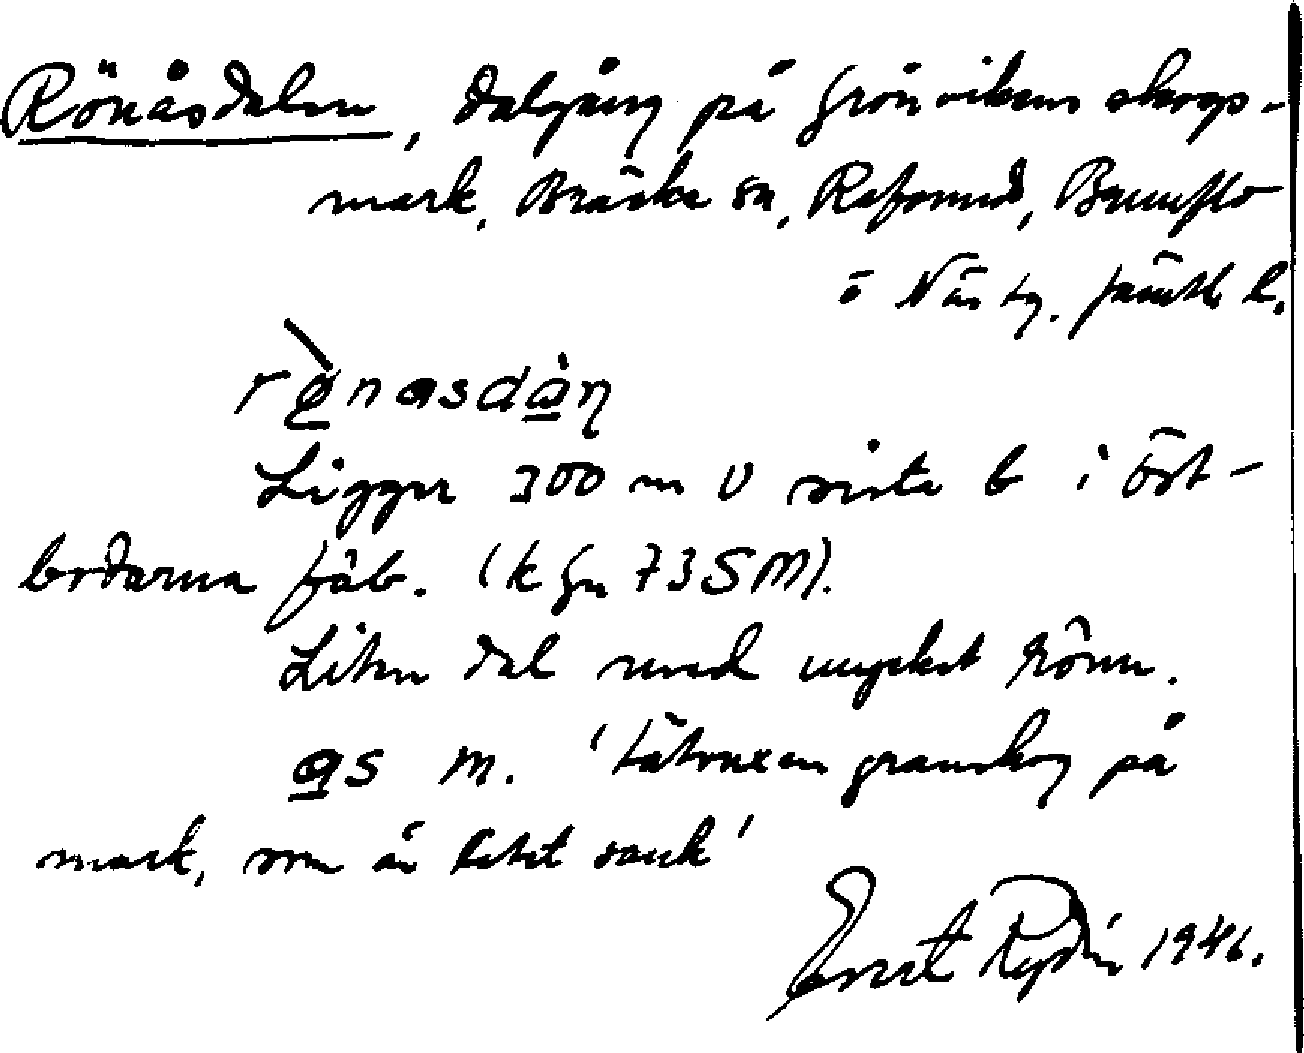 Rönåsdalen, dalgång på Grönvikens skogs-
mark, Bräcke sn, Refsunds, Brunflo
o Näs tg. Jämtl l.
Ligger 300 m V sista b i Öst-
bodarna fäb. (k Gr 735M).
Liten dal med mycket rönn.
as m. 'tätvuxen granskog på
mark, som är litet sank'
Ernst Rydén 1946.